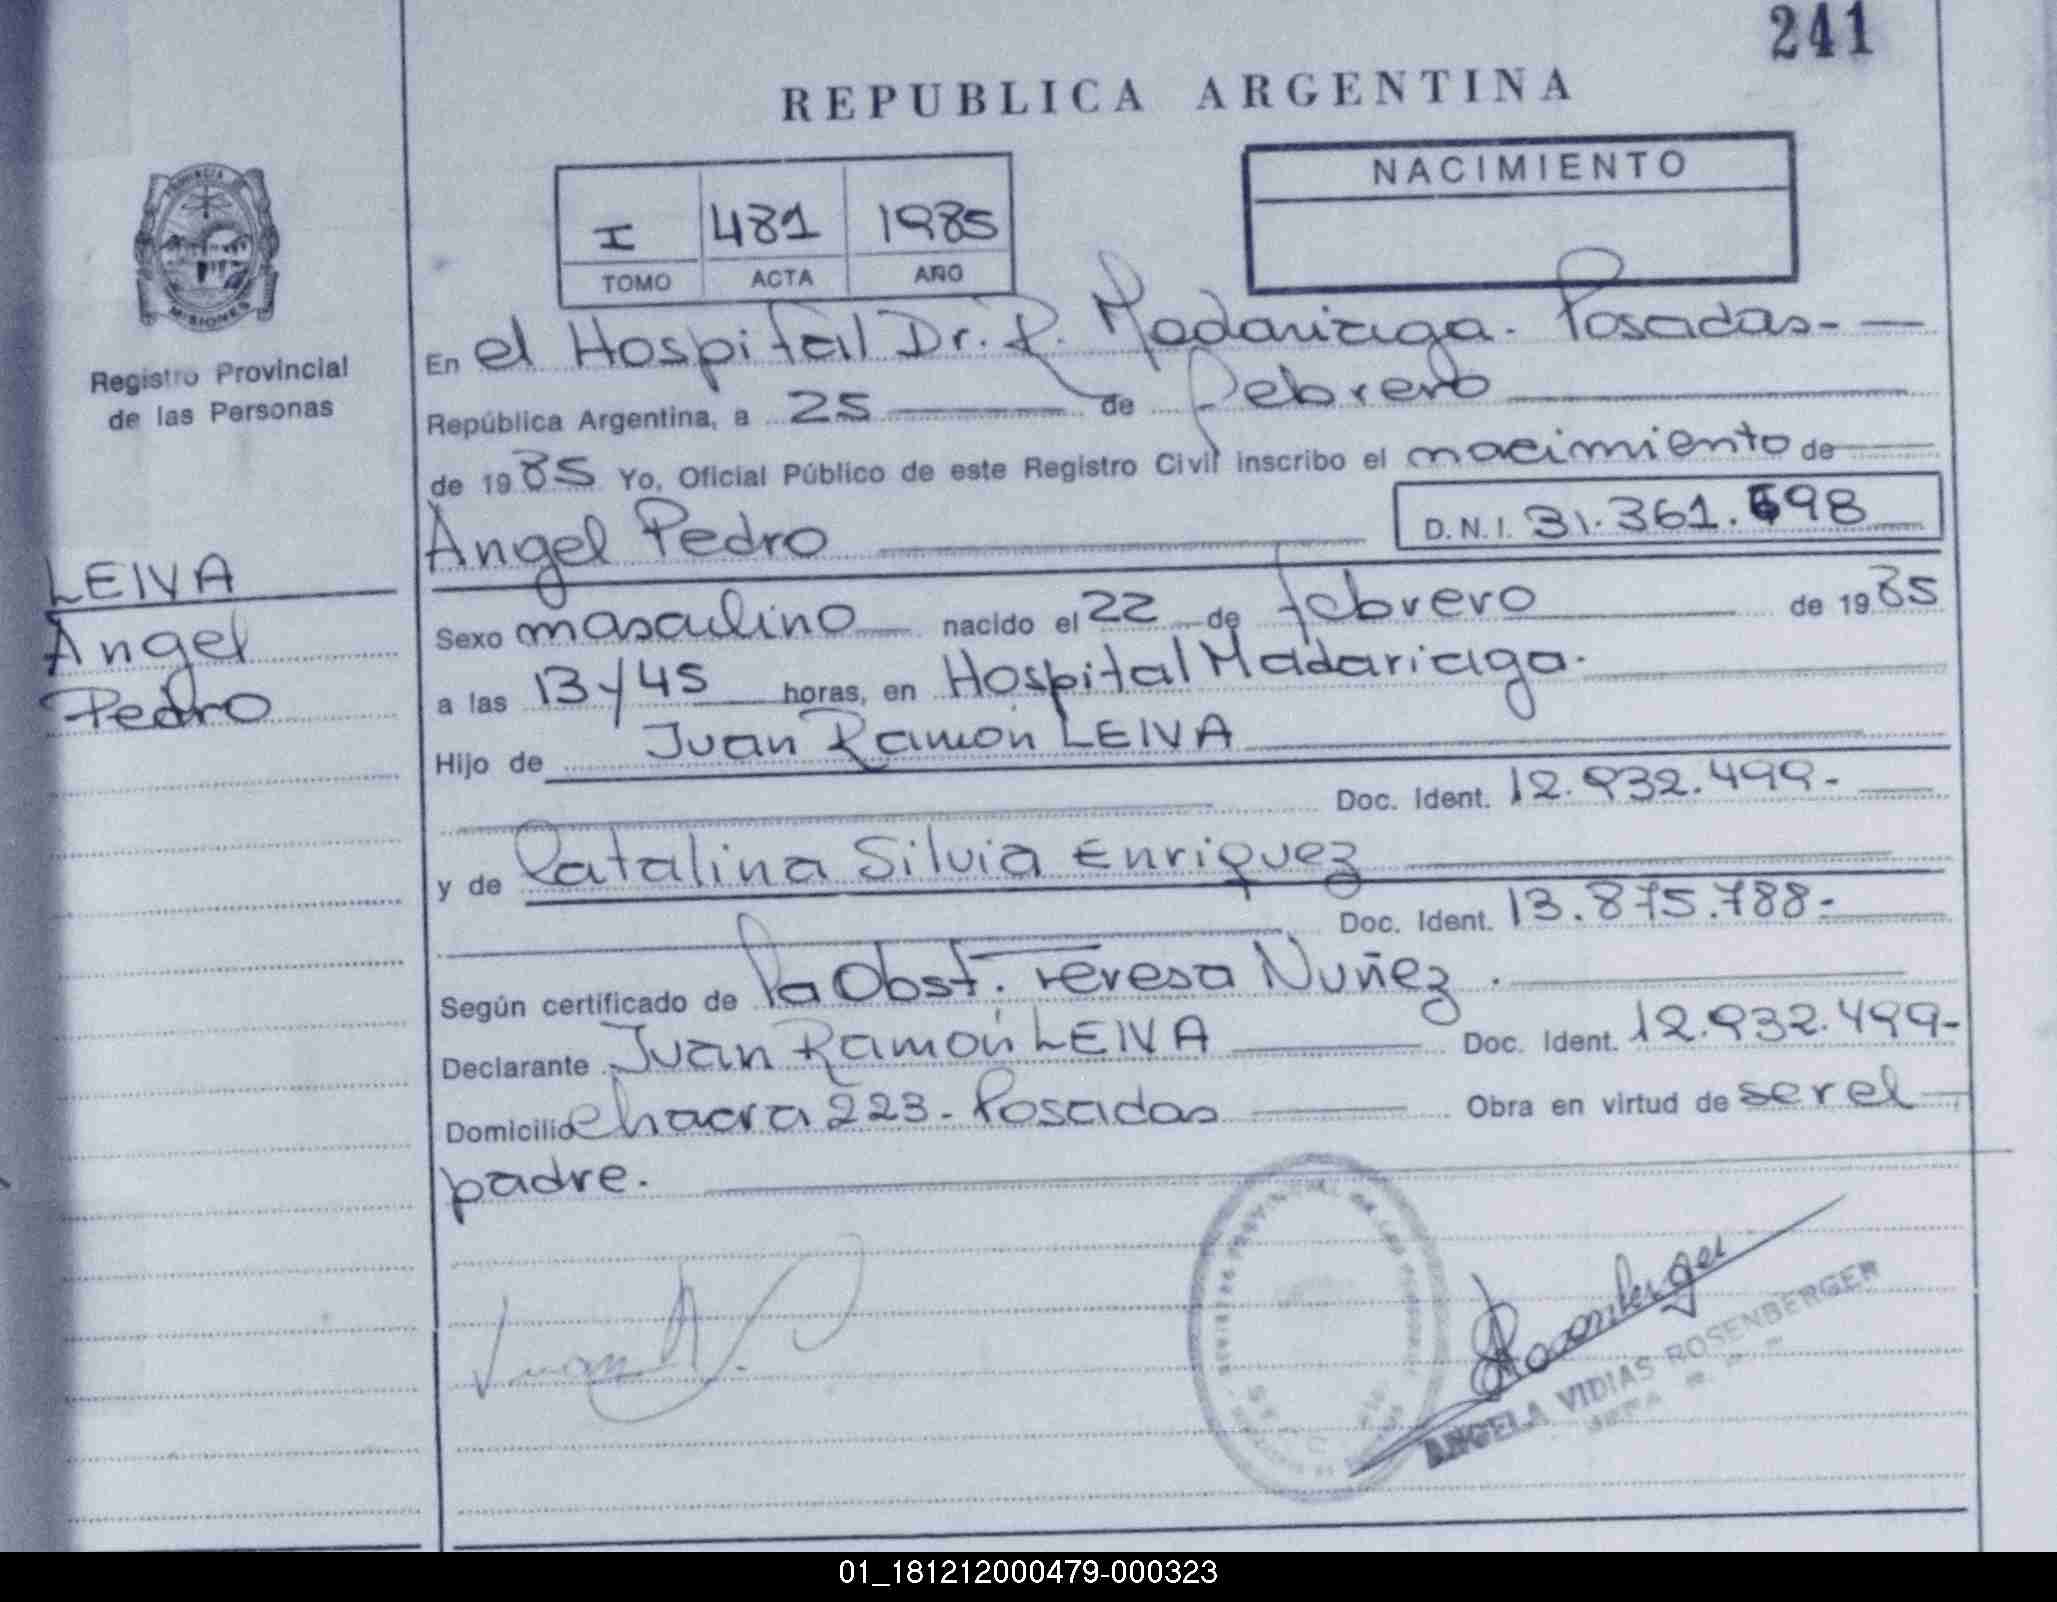 241
REPUBLICA ARGENTINA
NACIMIENTO
I 481 1985
TOMO ACTA AÑO
PROVINCIA
MISIONES
Registro Provincial
de las Personas
En el Hospital Dr. R. Madariaga. Posadas-
República Argentina, a 25 de febrero
de 1985 Yo, Oficial Público de este Registro Civil inscribo el nacimiento de
Angel Pedro D.N.I. 31.361.698
LEIVA
Angel
Pedro
Sexo masculino nacido el 22 de febrero de 1985
a las 13 y 45 horas, en Hospital Madariaga.
Hijo de Juan Ramón LEIVA
Doc. Ident. 12.932.499-
y de Catalina Silvia Enriquez
Doc. Ident. 13.875.788-
Según certificado de la Obst. Teresa Nuñez.
Declarante Juan Ramón LEIVA Doc. Ident. 12.932.499-
Domicilio Chacra 223- Posadas Obra en virtud de ser el
padre.
Juan
Rosenberger
ANGELA VIDIAS ROSENBERGER
01_181212000479-000323